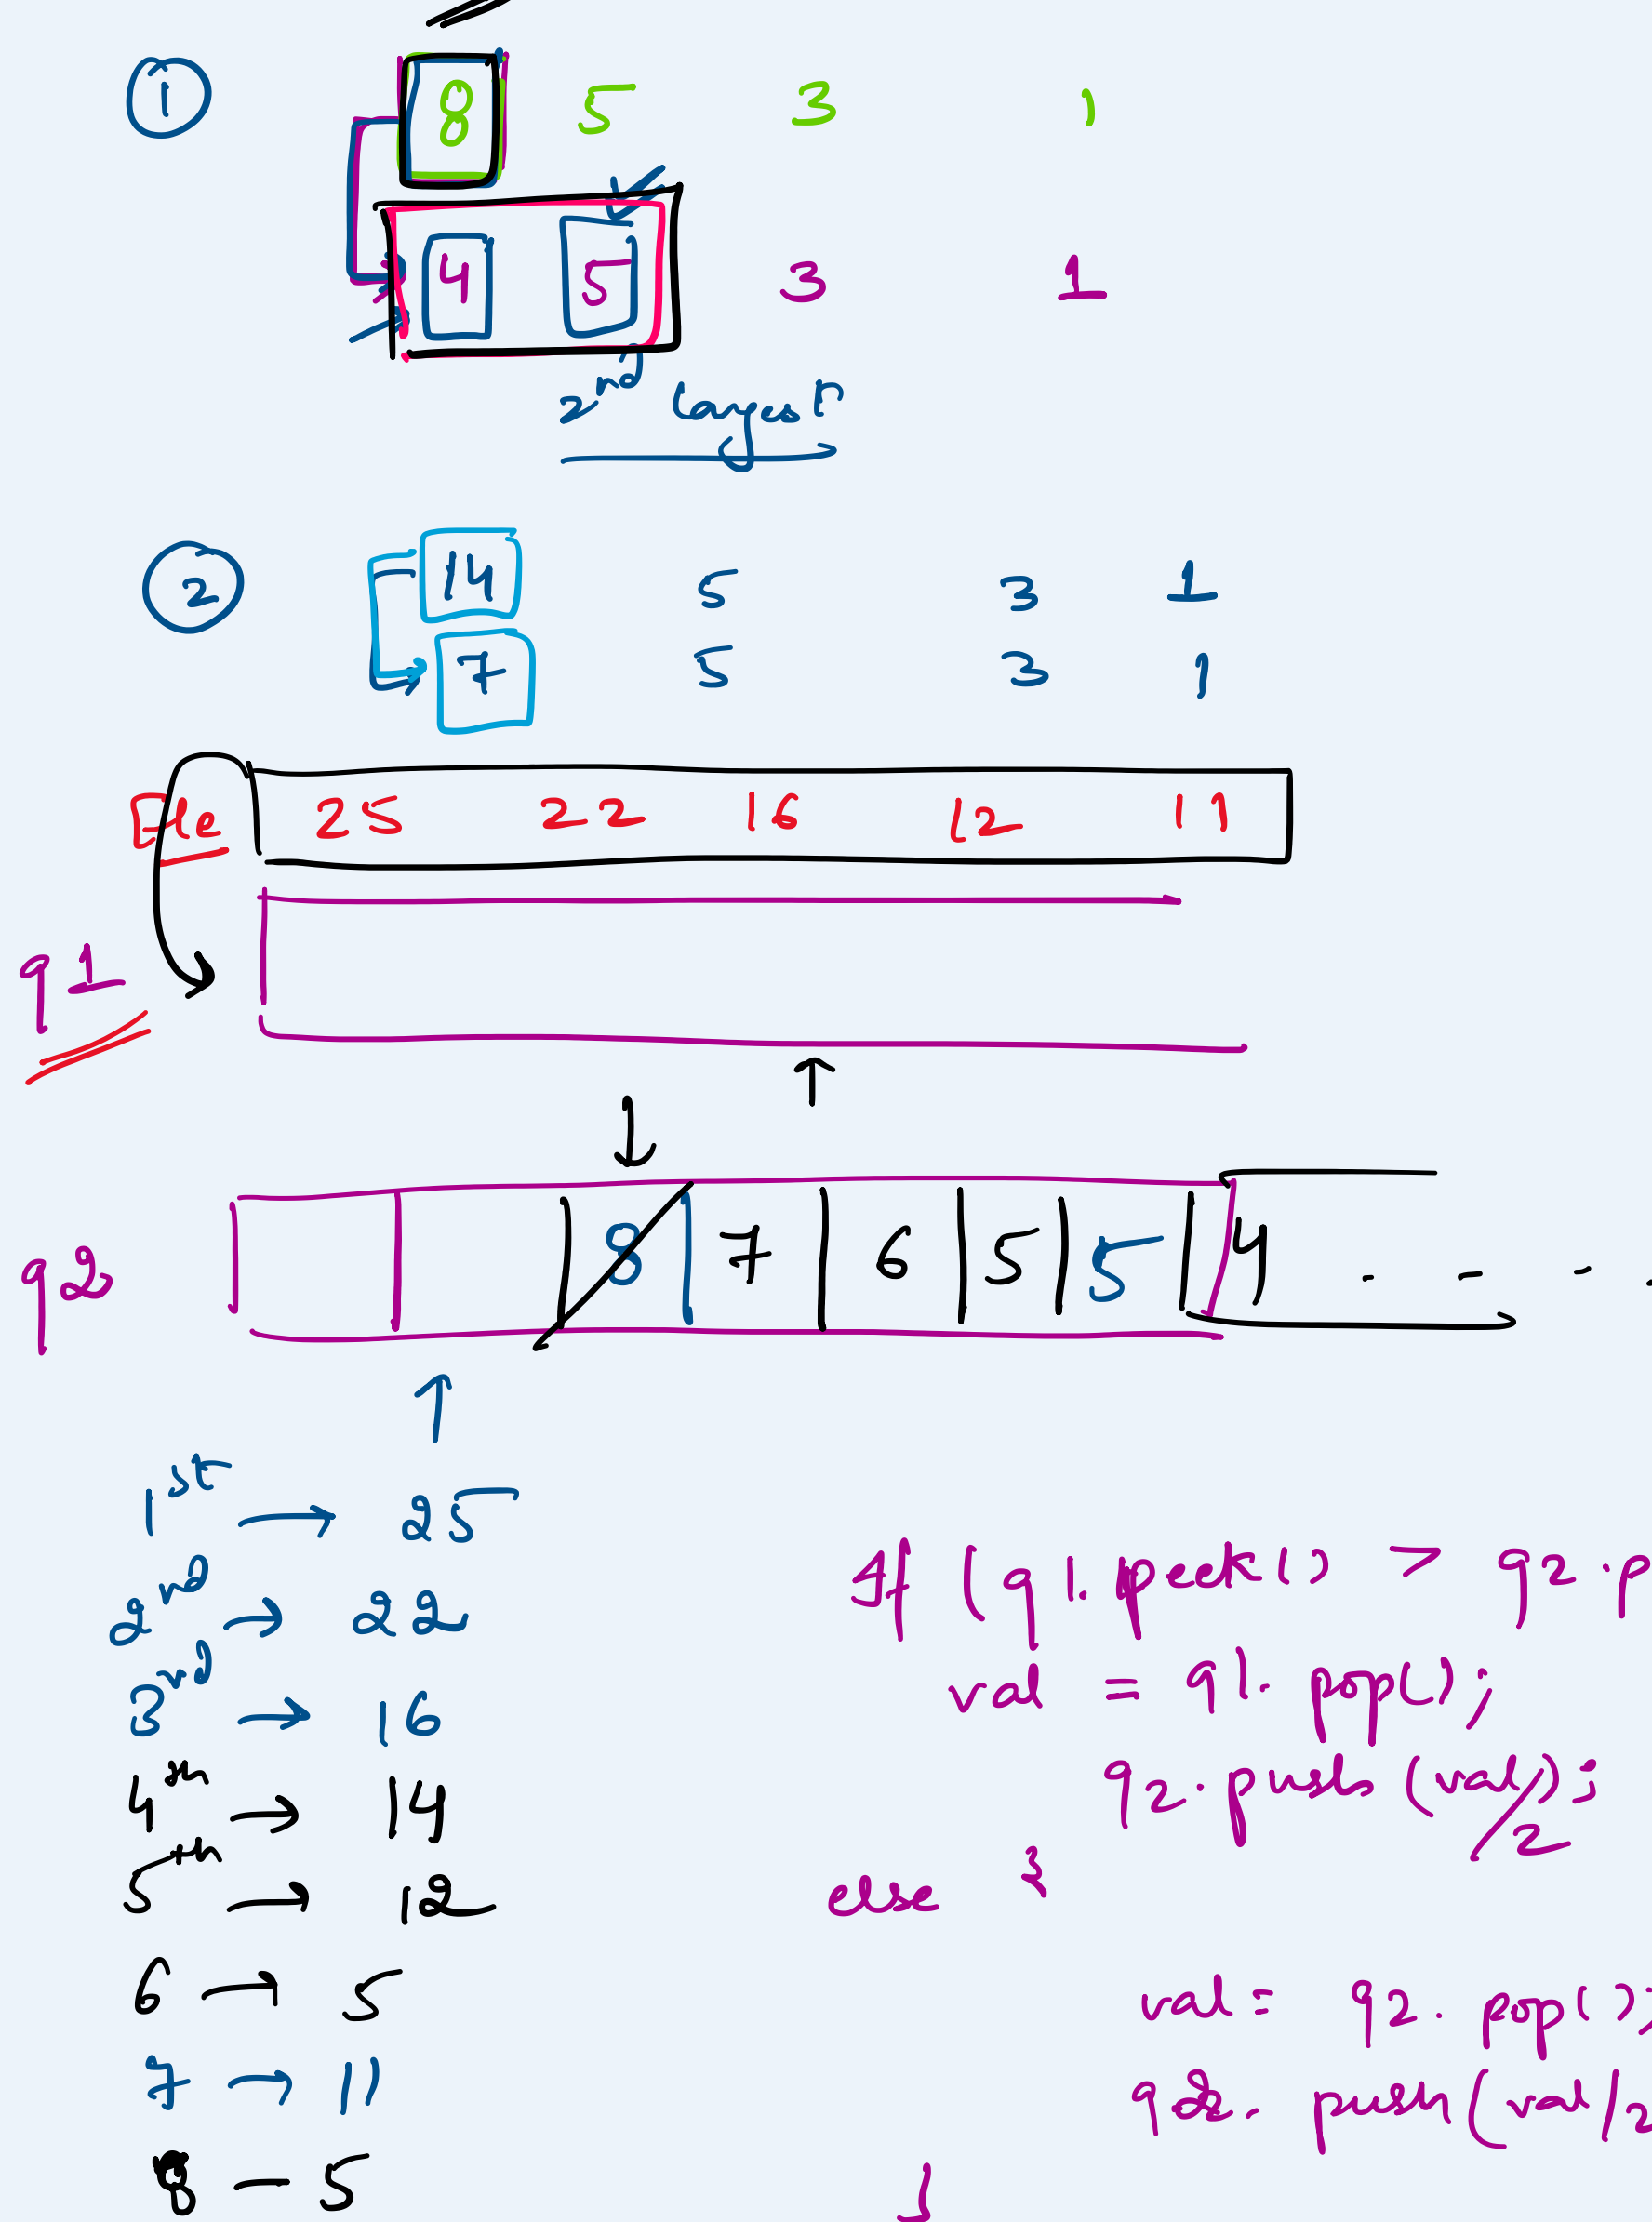 1 8 5 3 1
4 5 3 1
2nd largest
2 14 5 3 1
7 5 3 1
Ele 25 22 16 12 11
q1
q2 8 7 6 5 5 4 . - -
1st → 25
2nd → 22
3rd → 16
4th → 14
5th → 12
6 → 5
7 → 11
8 - 5
If (q1.peek() > q2.p
val = q1.pop();
q2.push(val/2);
else {
val = q2.pop();
q2.push(val/2
}